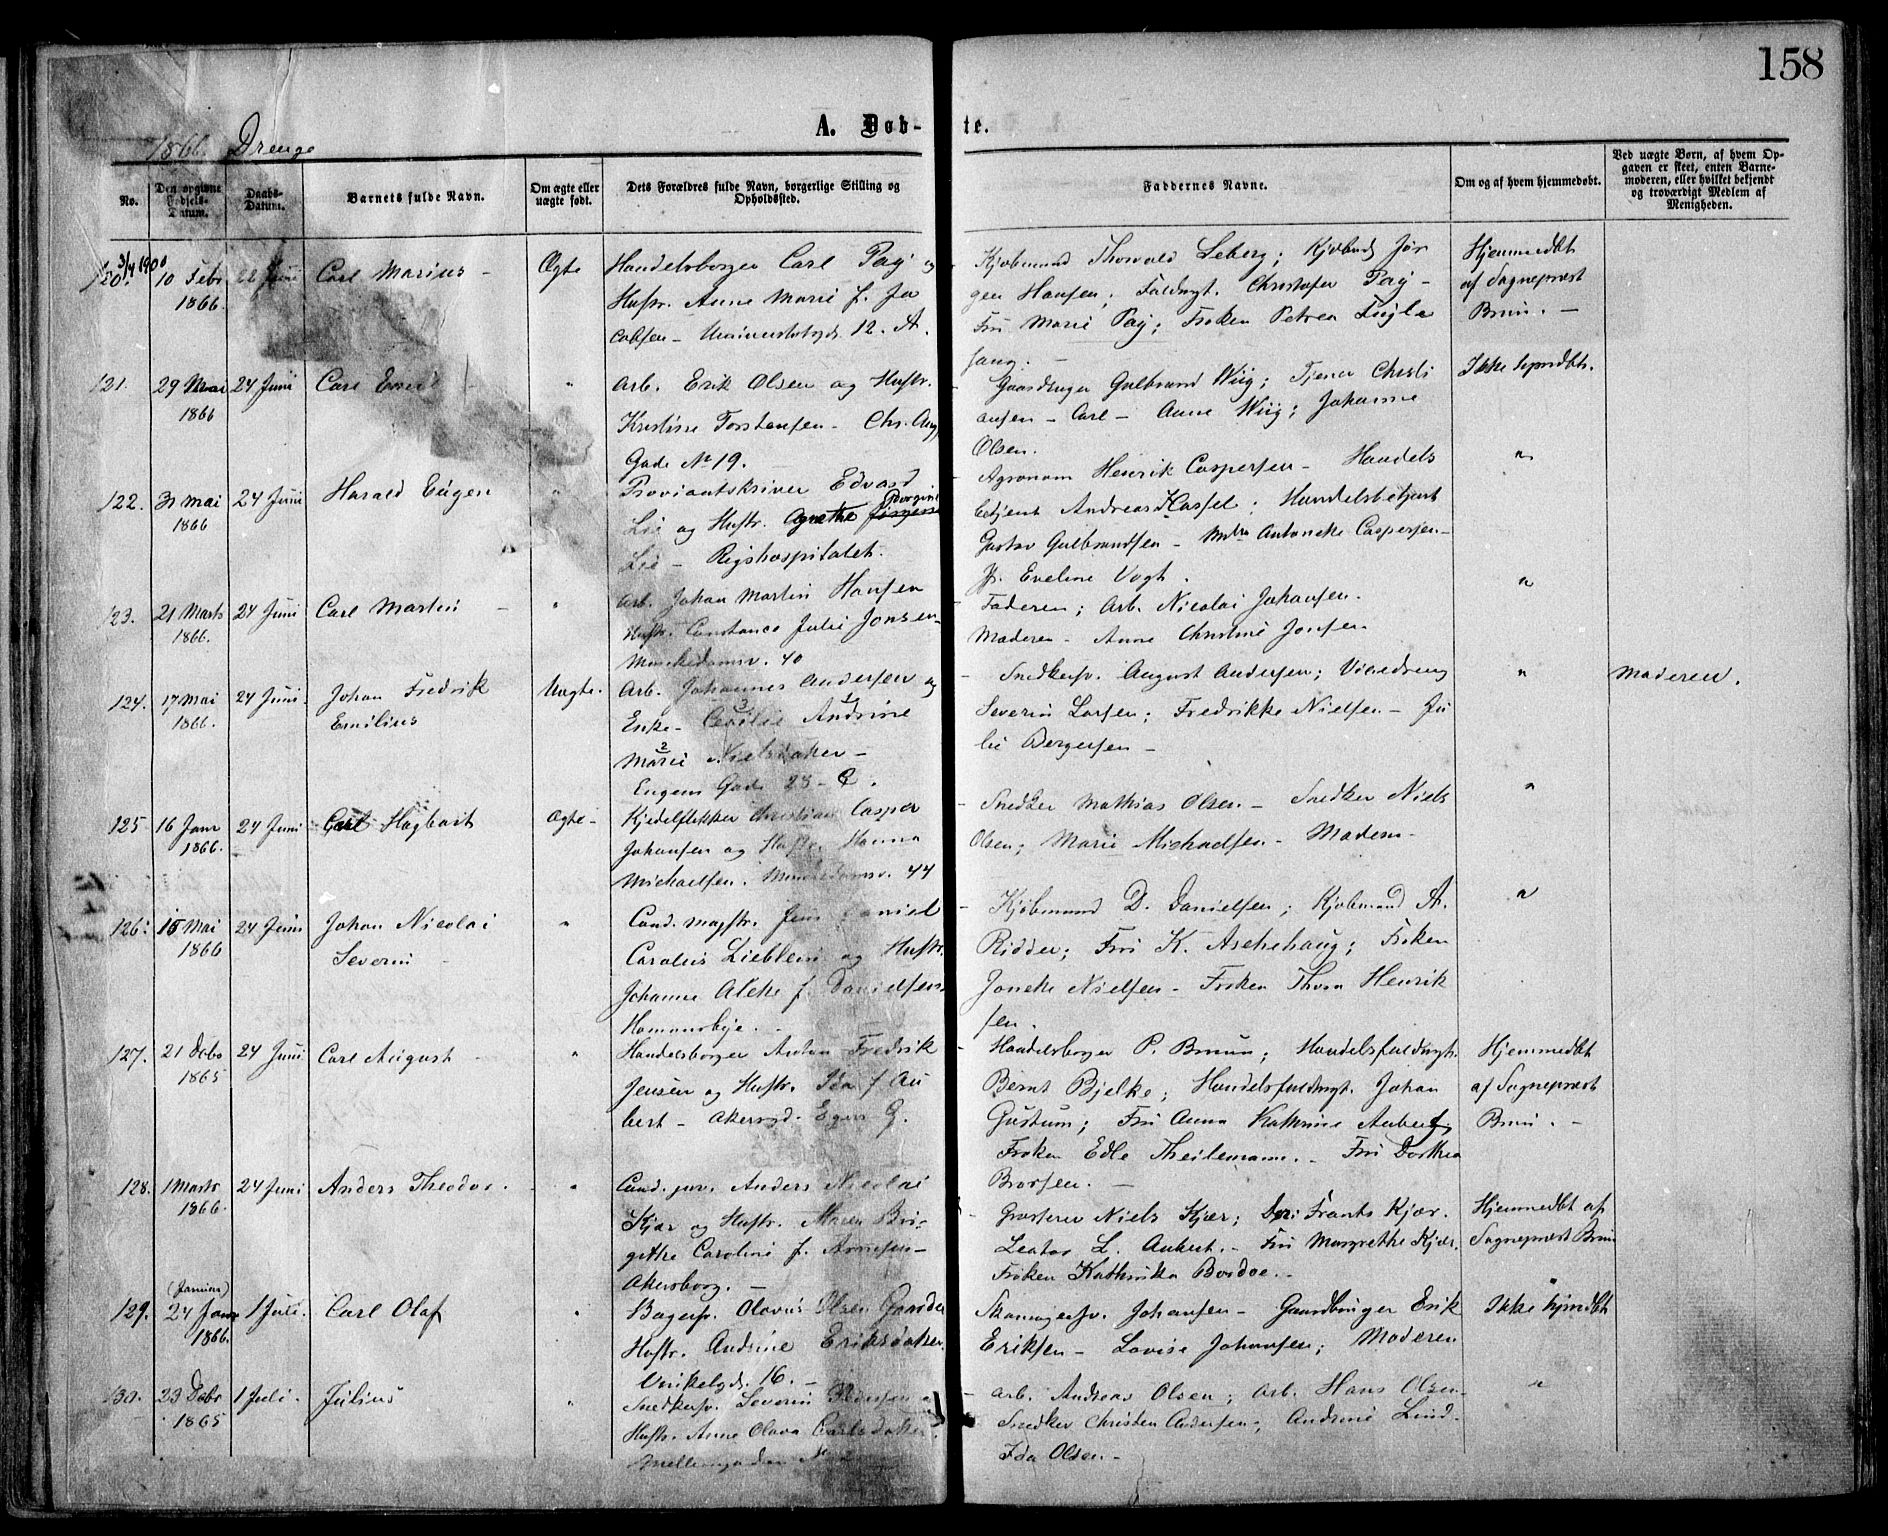 158
A. Døb-
te.
1866. Drenge
No.
Den opgivne Fødsels-Datum.
Daabs-Datum.
Barnets fulde Navn.
Om ægte eller uægte født.
Dets Forældres fulde Navn, borgerlige Stilling og Opholdssted.
Faddernes Navne.
Om og af hvem hjemmedøbt.
Ved uægte Børn, af hvem Opgaven er skeet, enten Barnemoderen, eller hvilket bekjendt og troværdigt Medlem af Menigheden.
3/4 1900
120. 10 Febr 1866. 22 Juni Carl Marius - Ægte
Handelsborger Carl Pay og
Hustr. Anne Marie f. Ja
cobsen - Universitetsgd. 12. A.
Kjøbmand Thorvald Leberg; Kjøbmd Jør
gen Hansen; Fuldmgt. Christofer Pay -
Fru Marie Pay; Frøken Petrea Fugle
sang. -
Hjemmedbt
af Sognepræst
Bruun. -
121. 29 Mai 1866 24 Juni Carl Emil - "
Arb. Erik Olsen og Hustr.
Kristine Torstensen - Chr. Aug.
Gade No 19.
Gaardbruger Gulbrand Wiig; Tjener Christi
ansen - Carl - Anne Wiig; Johanne
Olsen.
Ikke hjmdbt.
122. 31 Mai 1866 24 Juni Harald Eugen "
Proviantskriver Edvard
Lie og Hustr. Agnethe Jørgine
Lie - Rigshospitalet.
Agronom Henrik Caspersen - Handels
betjent Andreas Hassel; Handelsbetjent
Gustav Gulbrandsen - Antonette Caspersen -
Jf. Eveline Vogt.
"
123. 21 Marts 1866. 24 Juni Carl Martin - "
Arb. Johan Martin Hansen
Hustr. Constance Julie Jonsen -
Munkedamsv. 40
Faderen; Arb. Nicolai Johansen.
Moderen - Anne Christine Jonsen
"
124. 17 Mai 1866. 24 Juni. Johan Fredrik
Emilius Uægte.
Arb. Johannes Andersen og
Enke - Cecilie Andrine
Marie Nielsdatter -
Eugens Gade 28 - C.
Snedkersv. August Andersen; Visedreng
Severin Larsen; Fredrikke Nielsen - Ju
lie Bergersen -
" Moderen.
125 16 Janr 1866. 24 Juni Carl Hagbart Ægte -
Kjedelflikker Christian Casper
Johansen og Hustr. Hanna
Michaelsen. Munkedamsv. 44
Snedker Mathias Olsen. - Snedker Niels
Olsen; Marie Michaelsen - Moderen -
"
126. 15 Mai 1866 24 Juni Johan Nicolai
Severin - "
Cand. magstr. Jens Daniel
Carolus Lieblein og Hustr.
Johanne Alette f. Danielsen -
Homansbye. -
Kjøbmand D. Danielsen; Kjøbmand A.
Ridder; Fru K. Aschehoug; Frøken
Janette Nielsen - Frøken Thora Henrik
sen.
"
127. 21 Debr 1865 24 Juni Carl August - "
Handelsborger Anton Fredrik
Jensen og Hustr. Ida f. Au
bert - Akersgd. Egen G.
Handelsborger P. Bruun; Handelsfuldmgt.
Bernt Bjelke; Handelsfuldmgt. Johan
Gustum; Fru Anna Kathrine Aubert;
Frøken Edle Theilemann. - Fru Dorthea
Brorsen. -
Hjemmedbt
af Sognepræst
Bruun. -
128. 1 Marts 1866. 24 Juni Anders Theodor. - "
Cand. jur. Anders Nicolai
Kjær og Hustr. Maren Bri-
gitthe Caroline f. Arnesen -
Akersborg. -
Grosserer Niels Kjær; Frants Kjær.
L. Aubert. - Fru Margrethe Kjær.
Frøken Kathinka Bordoe. -
Hjemmedbt af
Sognepræst Bruun
129. (Januar) 24 Janr 1866. 1 Juli. Carl Olaf "
Bagersv. Olavus Olsen
Hustr. Andrine Eriksdatter.
Vinkelgd. 16. -
Skomagersv. Johansen - Gaardbruger Erik
Eriksen - Lovise Johansen; Moderen
Ikke hjmdbt
130. 23 Debr 1865 1 Juli. Julius "
Snedkersv. Severin Pedersen og
Hustr. Anne Olava Carlsdatter.
Mellemgaden No 2
Arb. Andreas Olsen; Arb. Hans Olsen -
Snedker Christen Andersen; Andrine Lind -
Ida Olsen -
"